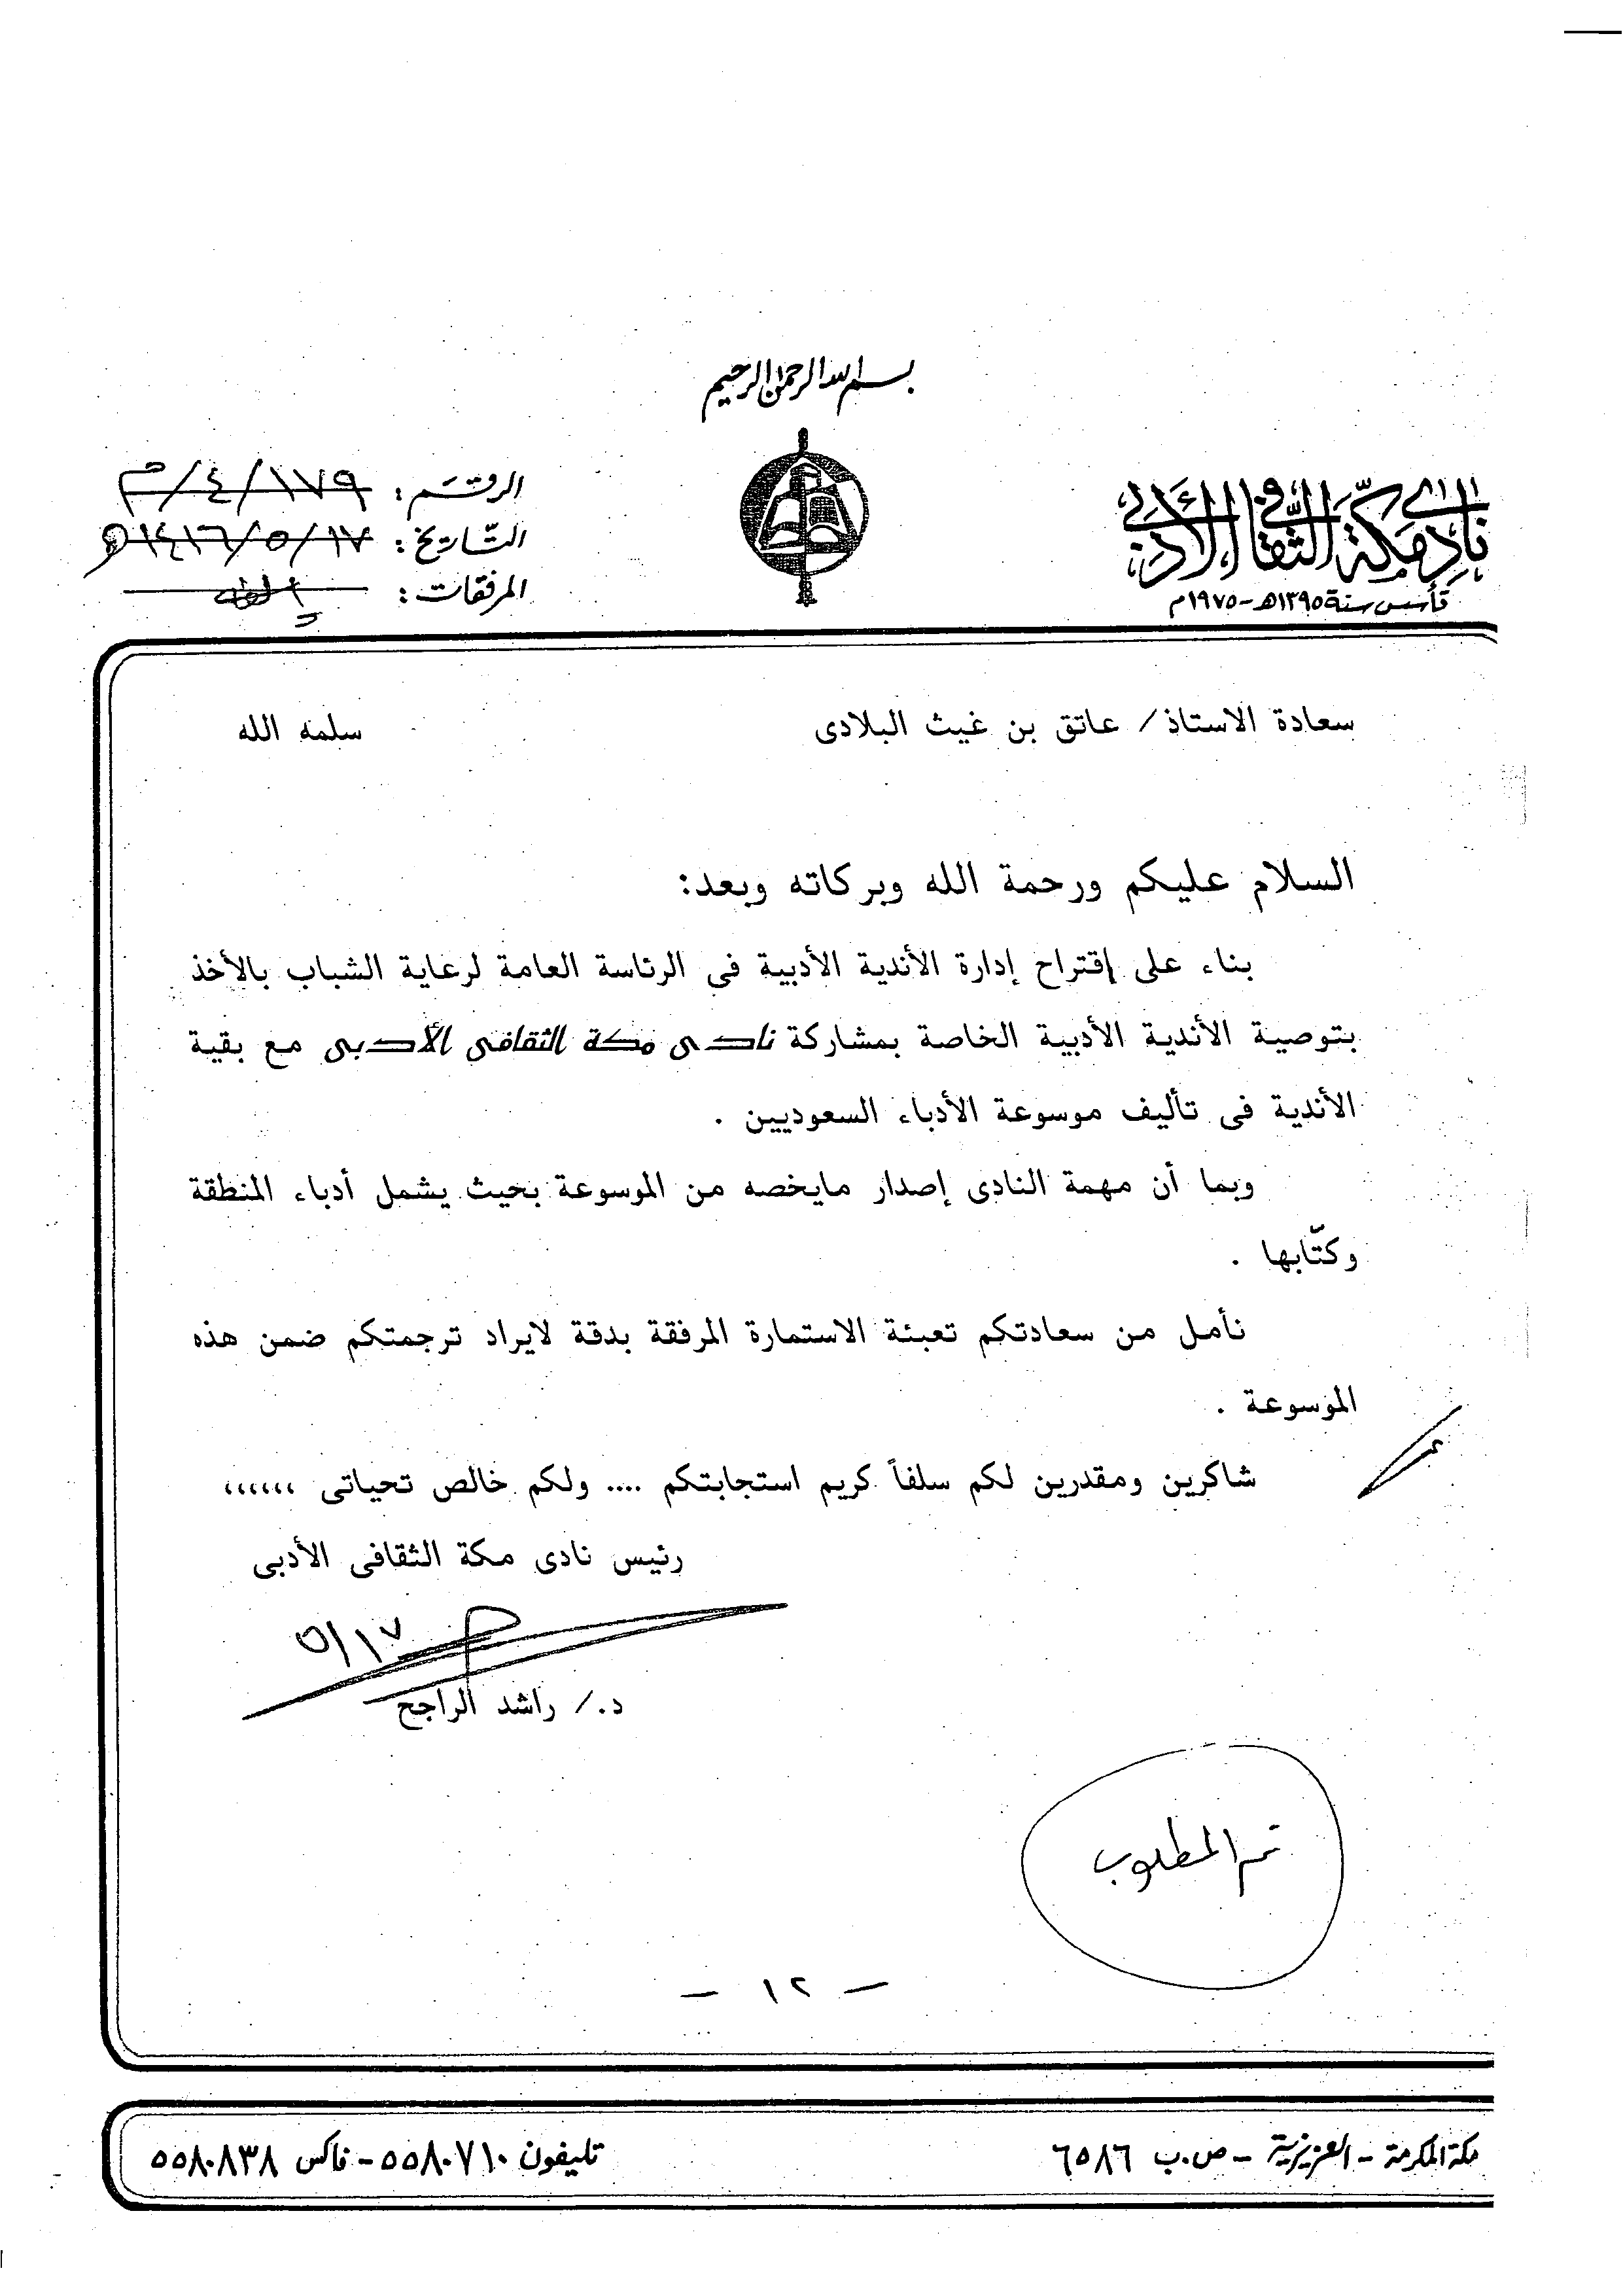 بسم الله الرحمن الرحيم
نادي مكة الثقافي الأدبي
تأسس سنة ١٣٩٥هـ - ١٩٧٥م
الرقم : ١٧٩/٤/م
التاريخ : ١٧/٥/١٤١٦هـ
المرفقات :
سعادة الاستاذ/ عاتق بن غيث البلادى سلمه الله
السلام عليكم ورحمة الله وبركاته وبعد:
بناء على إقتراح إدارة الأندية الأدبية فى الرئاسة العامة لرعاية الشباب بالأخذ
بتوصية الأندية الأدبية الخاصة بمشاركة نادى مكة الثقافى الأدبى مع بقية
الأندية فى تأليف موسوعة الأدباء السعوديين .
وبما أن مهمة النادى إصدار مايخصه من الموسوعة بحيث يشمل أدباء المنطقة
وكتّابها .
نأمل من سعادتكم تعبئة الاستمارة المرفقة بدقة لايراد ترجمتكم ضمن هذه
الموسوعة .
شاكرين ومقدرين لكم سلفاً كريم استجابتكم .... ولكم خالص تحياتى ،،،،،،
رئيس نادى مكة الثقافى الأدبى
١٧/٥
د./ راشد الراجح
تم المطلوب
- ١٢ -
مكة المكرمة - العزيزية - ص.ب ٦٥٨٦
تليفون ٥٥٨٠٧١٠ - فاكس ٥٥٨٠٨٣٨